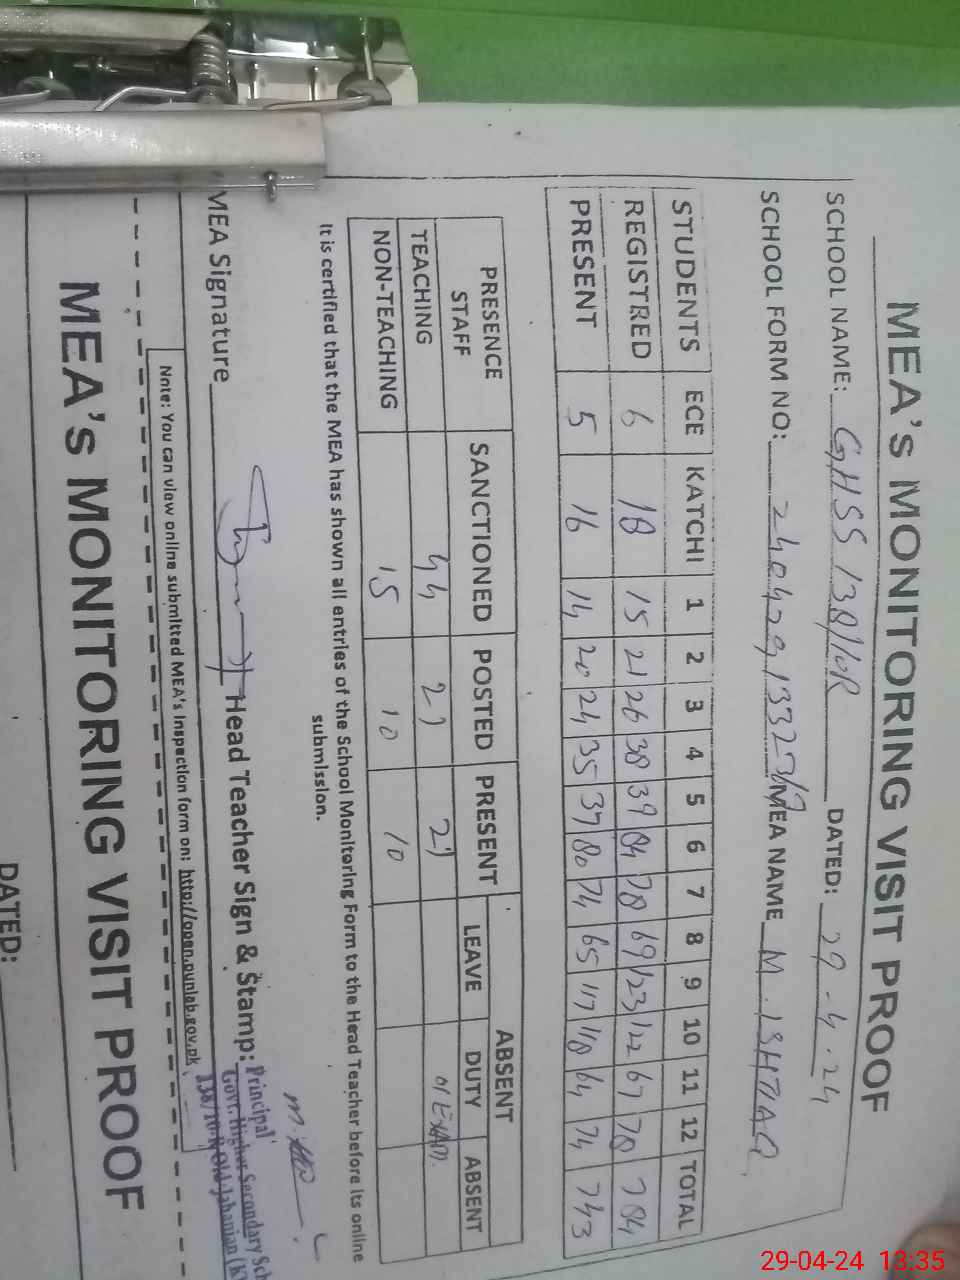 MEA's MONITORING VISIT PROOF
SCHOOL NAME: GHSS 138/10R DATED: 29-4-24
SCHOOL FORM NO: MEA NAME M. ISHTIAQ
STUDENTS ECE KATCHI 1 2 3 4 5 6 7 8 9 10 11 12 TOTAL
REGISTRED 6 18 15 21 26 38 39 84 78 69 123 122 67 78 784
PRESENT 5 16 14 20 24 35 37 80 74 65 117 118 64 74 743
PRESENCE STAFF SANCTIONED POSTED PRESENT ABSENT
LEAVE DUTY ABSENT
TEACHING 44 01 EXAM.
NON-TEACHING 15 10 10
It is certified that the MEA has shown all entries of the School Monitoring Form to the Head Teacher before its online
submission.
MEA Signature Head Teacher Sign & Stamp:
Principal
Govt. Higher Secondary Sch
138/10-R Old Jahanian (K
Note: You can view online submitted MEA's inspection form on: http://open.punjab.gov.pk
MEA's MONITORING VISIT PROOF
DATED:
29-04-24 13:35